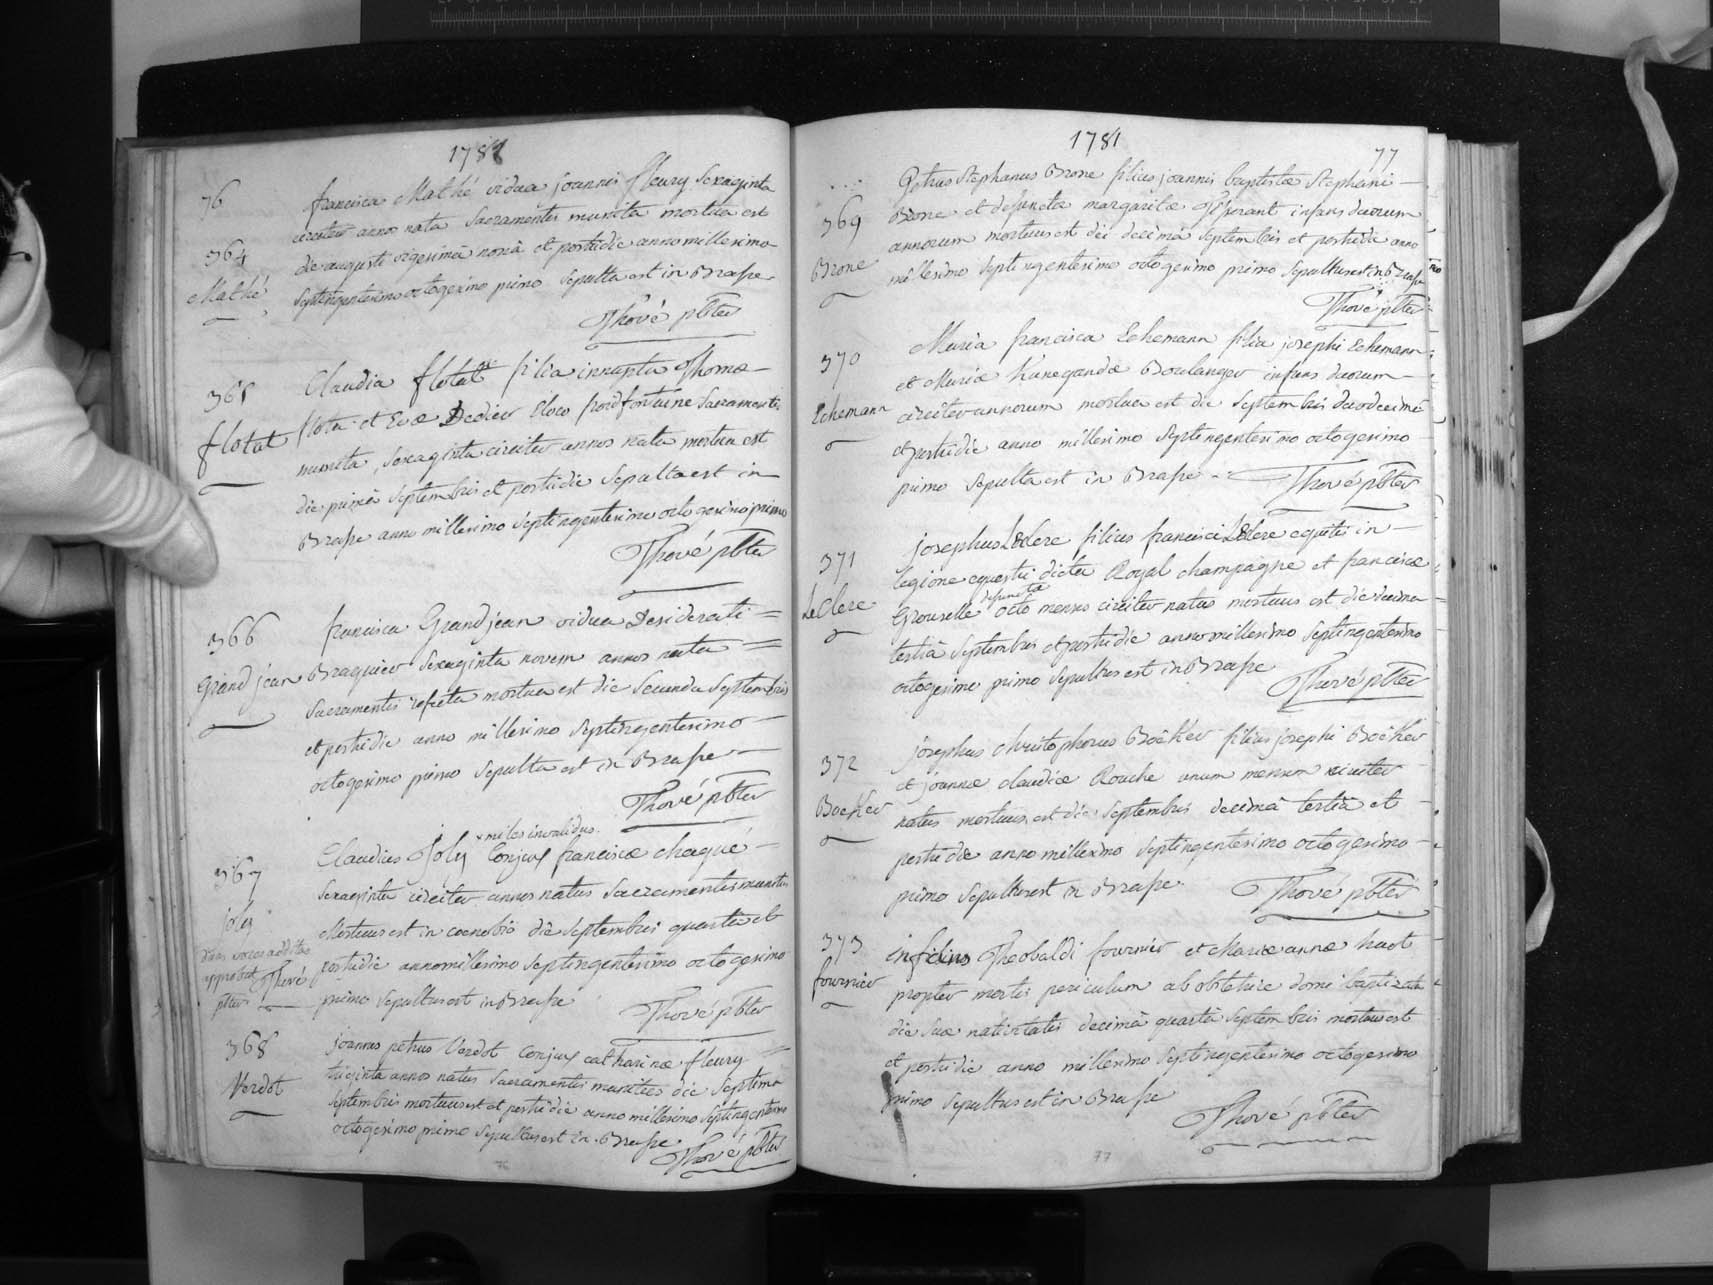 1781
76
francisca Mathé vidua joannis fleury sexaginta
circiter annos nata Sacramentis munita mortua est
364
die augusti vigesimâ nonâ et postridie anno millesimo
Mathé
Septingentesimo octogesimo primo Sepulta est in Brase
Thové pbter
Claudia flotat filia innupta Thomæ
365
flotat et Evæ Dedier Sacramentis
flotat
munita, sexaginta circiter annos nata mortua est
die primâ Septembris et postridie Sepulta est in
Brase anno millesimo Septingentesimo octogesimo primo
Thové pbter
francisca Grandjean vidua Desiderati
366
Braquier Sexaginta novem annos nata
Grandjean
Sacramentis refecta mortua est die Secunda Septembris
et postridie anno millesimo Septingentesimo
octogesimo primo Sepulta est in Brase
Thové pbter
x miles invalidus
Claudius Joly Conjux franciscæ chaqué
367
Sexaginta circiter annos natus Sacramentis munitus
joly
Mortuus est in coenobio die Septembris quarta et
duas voces additas
approbat Thové
pbter
postridie anno millesimo Septingentesimo octogesimo
primo Sepultus est in Brase
Thové pbter
368
joannes petrus Verdot Conjux catharinæ fleury
triginta annos natus Sacramentis munitus die Septima
Verdot
Septembris mortuus est et postridie anno millesimo Septingentesimo
octogesimo primo Sepultus est in Brase
Thové pbter
76
1781
77
Petrus Stephanus Brone filius joannis baptistæ Stephani
369
Brone et defunctæ margaritæ infans duorum
annorum mortuus est die decimâ Septembris et postridie anno
Brone
millesimo Septingentesimo octogesimo primo Sepultus est in Brase
Thové pbter
Maria francisca Echemann filia josephi Echemann
370
et Mariæ Kunegandæ Boulanger infans duorum
Echemann
circiter annorum mortua est die Septembris duodecimâ
et postridie anno millesimo Septingentesimo octogesimo
primo Sepulta est in Brase
Thové pbter
josephus LeClere filius francisci LeClere equitis in
371
legione equestri dicta Royal champagne et franciscæ
defuncta
LeClere
Grouselle octo menses circiter natus mortuus est die decima
tertiâ Septembris et postridie anno millesimo Septingentesimo
octogesimo primo Sepultus est in Brase
Thové pbter
josephus christophorus Boëker filius josephi Boëker
372
et joannæ claudiæ Rouche unum mensem circiter
Boeker
natus mortuus est die Septembris decimâ tertiâ et
postridie anno millesimo Septingentesimo octogesimo
primo Sepultus est in Brase
Thové pbter
373
filius Theobaldi fournier et Mariæ annæ huot
fournier
propter mortis periculum ab obstetrice domi baptizatus
die suæ nativitatis decimâ quartâ Septembris mortuus est
et postridie anno millesimo Septingentesimo octogesimo
primo Sepultus est in Brase
Thové pbter
77